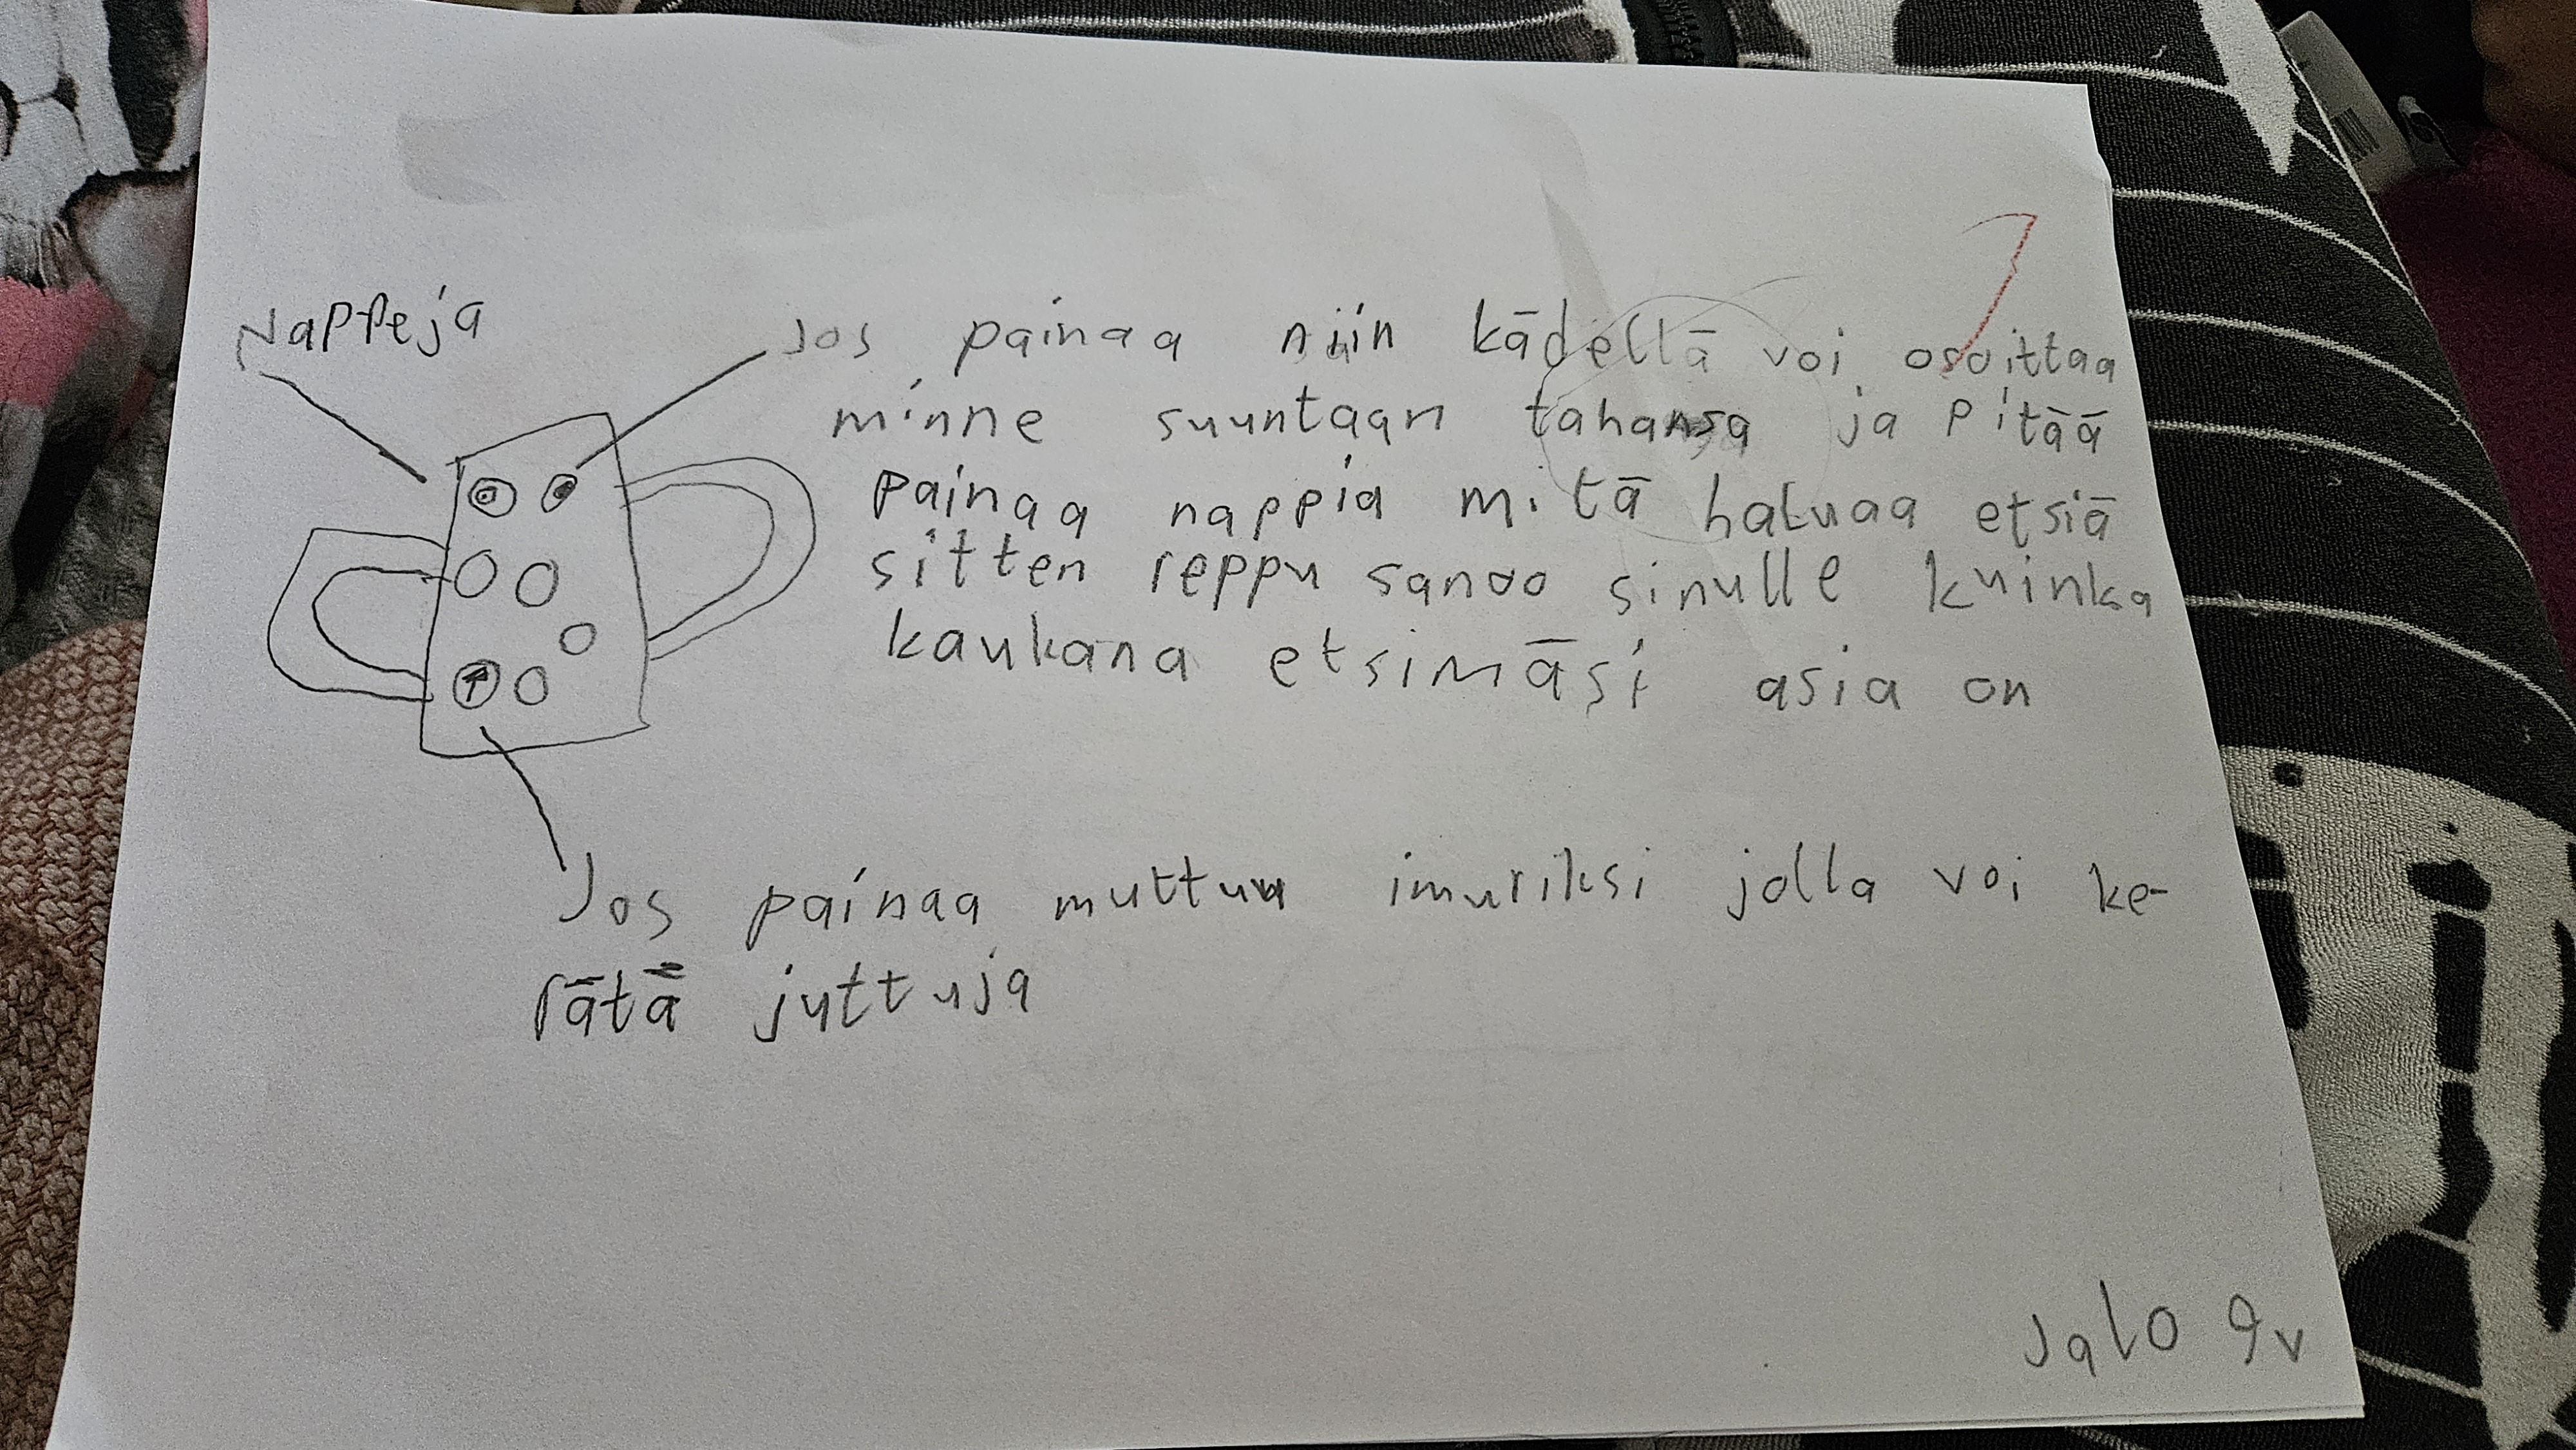 Nappeja
Jos painaa niin kädellä voi osoittaa
minne suuntaan tahansa ja pitää
painaa nappia mitä haluaa etsiä
sitten reppu sanoo sinulle kuinka
kaukana etsimäsi asia on
Jos painaa muttuu imuriksi jolla voi ke-
rätä juttuja
Jalo 9v